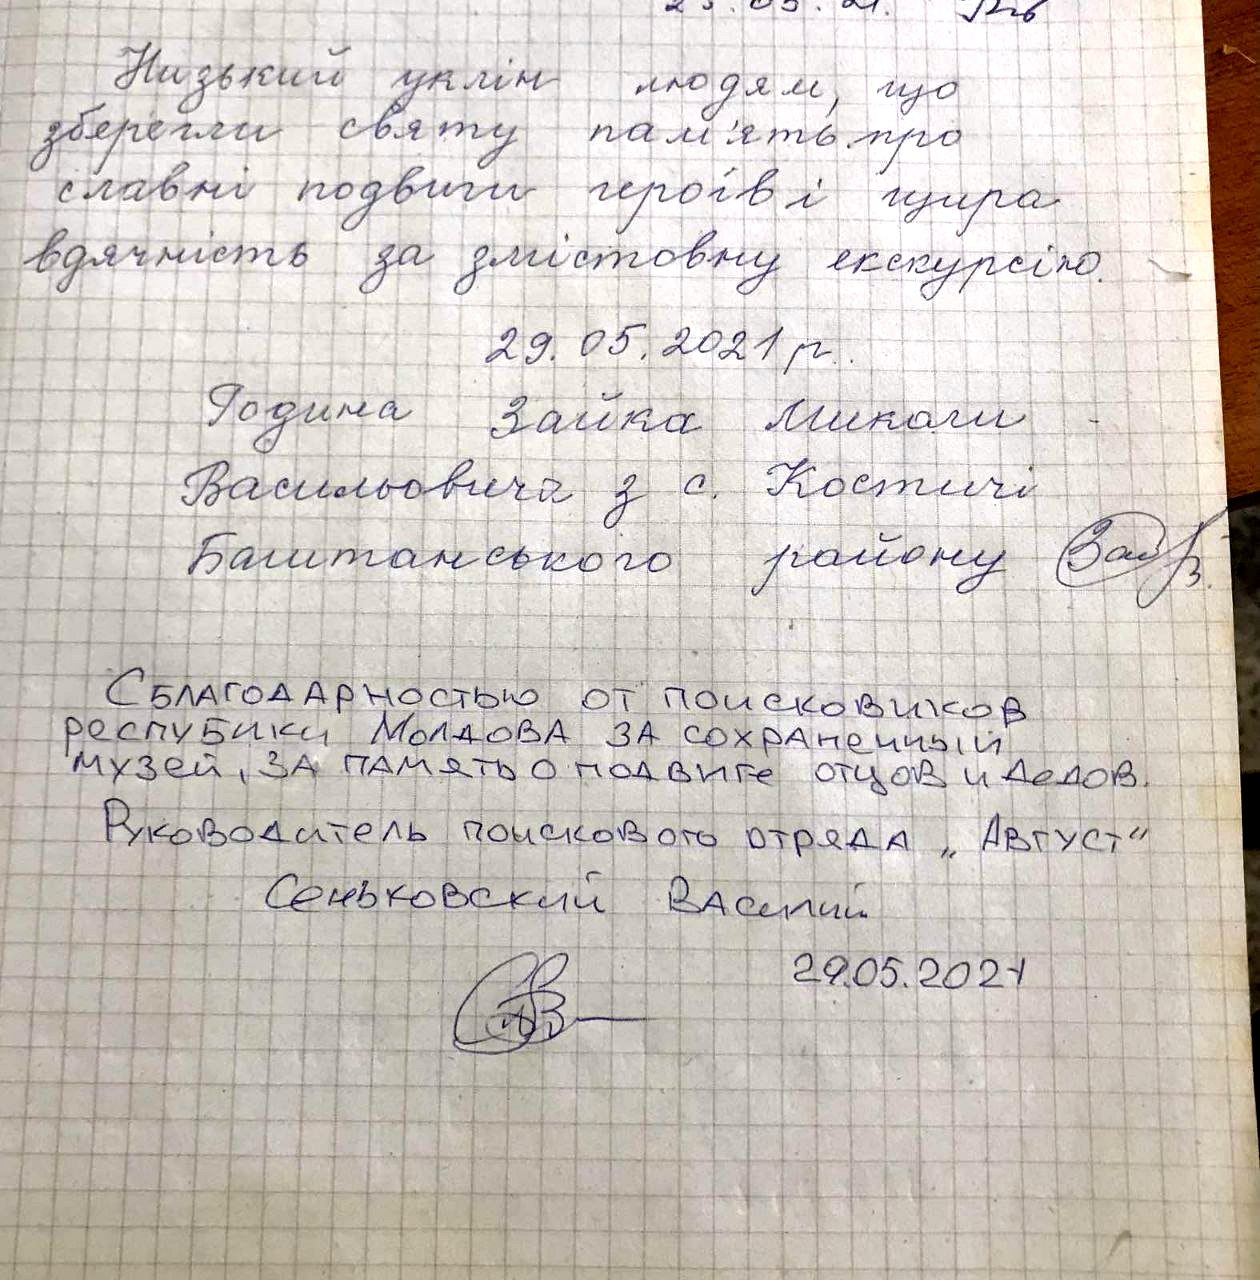 Низький уклін людям, що
зберегли святу пам'ять про
славні подвиги героїв і щира
вдячність за змістовну екскурсію.
29.05.2021 р.
Родина Зайка Миколи
Васильовича з с. Костичі
Баштанського району
С БЛАГОДАРНОСТЬЮ ОТ ПОИСКОВИКОВ
РЕСПУБИКИ МОЛДОВА ЗА СОХРАНЕННЫЙ
МУЗЕЙ, ЗА ПАМЯТЬ О ПОДВИГЕ ОТЦОВ И ДЕДОВ.
РУКОВОДИТЕЛЬ ПОИСКОВОГО ОТРЯДА „АВГУСТ“
СЕНЬКОВСКИЙ ВАСИЛИЙ
29.05.2021